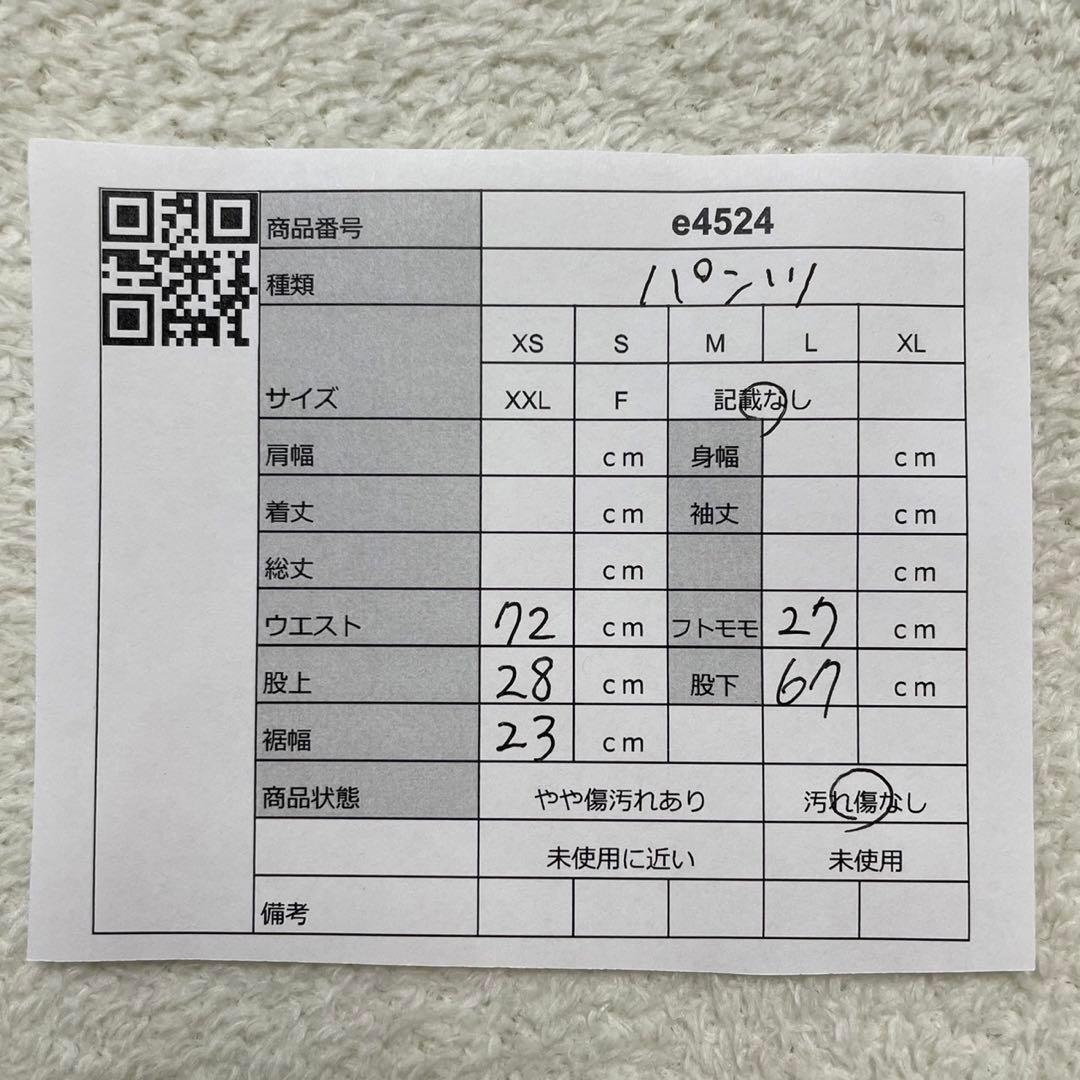 商品番号 e4524
種類 パンツ
XS S M L XL
サイズ XXL F 記載なし
肩幅 cm 身幅 cm
着丈 cm 袖丈 cm
総丈 cm cm
ウエスト 72 cm フトモモ 27 cm
股上 28 cm 股下 67 cm
裾幅 23 cm
商品状態 やや傷汚れあり 汚れ傷なし
未使用に近い 未使用
備考